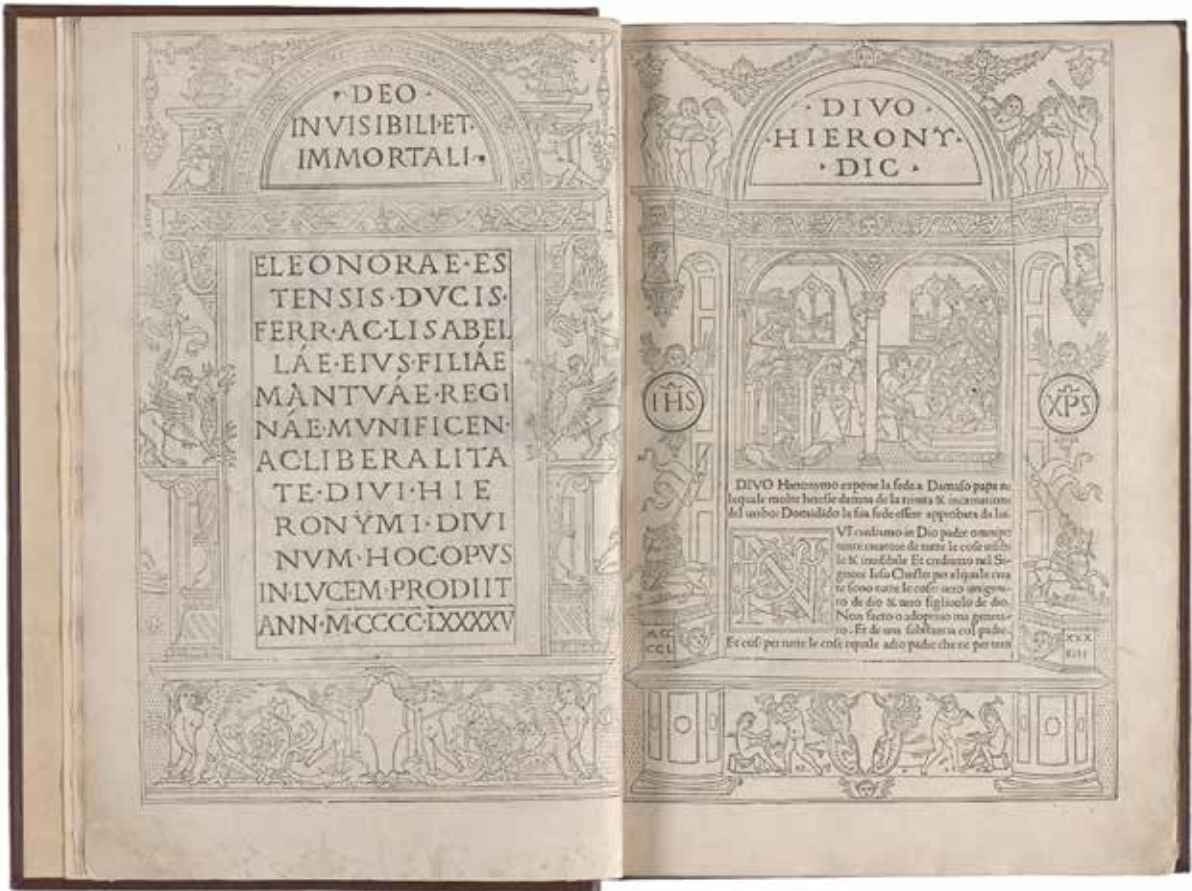 · DEO ·
INVISIBILI·ET·
IMMORTALI·
ELEONORAE·ES
TENSIS·DVCIS·
FERR·AC·LISABEL
LÁE·EIVS·FILIÁE
MANTVÁE·REGI
NÁE·MVNIFICEN·
AC LIBERALITA
TE·DIVI·HIE
RONYMI·DIVI
NVM·HOC OPVS
IN·LVCEM·PRODIIT
ANN·M·CCCC·LXXXXV
· DIVO ·
·HIERONY·
· DIC ·
IHS
XPS
DIVO Hieronymo expone la fede a Damaso papa
le quale molte heresie danna de la trinita & incarnatione
del uerbo: Domādādo la sua fede essere approbata da lui.
VI crediamo in Dio padre omnipo
tente creatore de tutte le cose uisibi
le & inuisibile Et crediamo nel Si-
gnore Iesu Christo per el quale crea
te sono tutte le cose: uero unigeni-
to de dio & uero figliuolo de dio.
Non facto o adoptiuo ma genera-
to. Et de una substantia col padre.
Et cosi per tutte le cose equale a dio padre che ne per tem
XXX
IIII